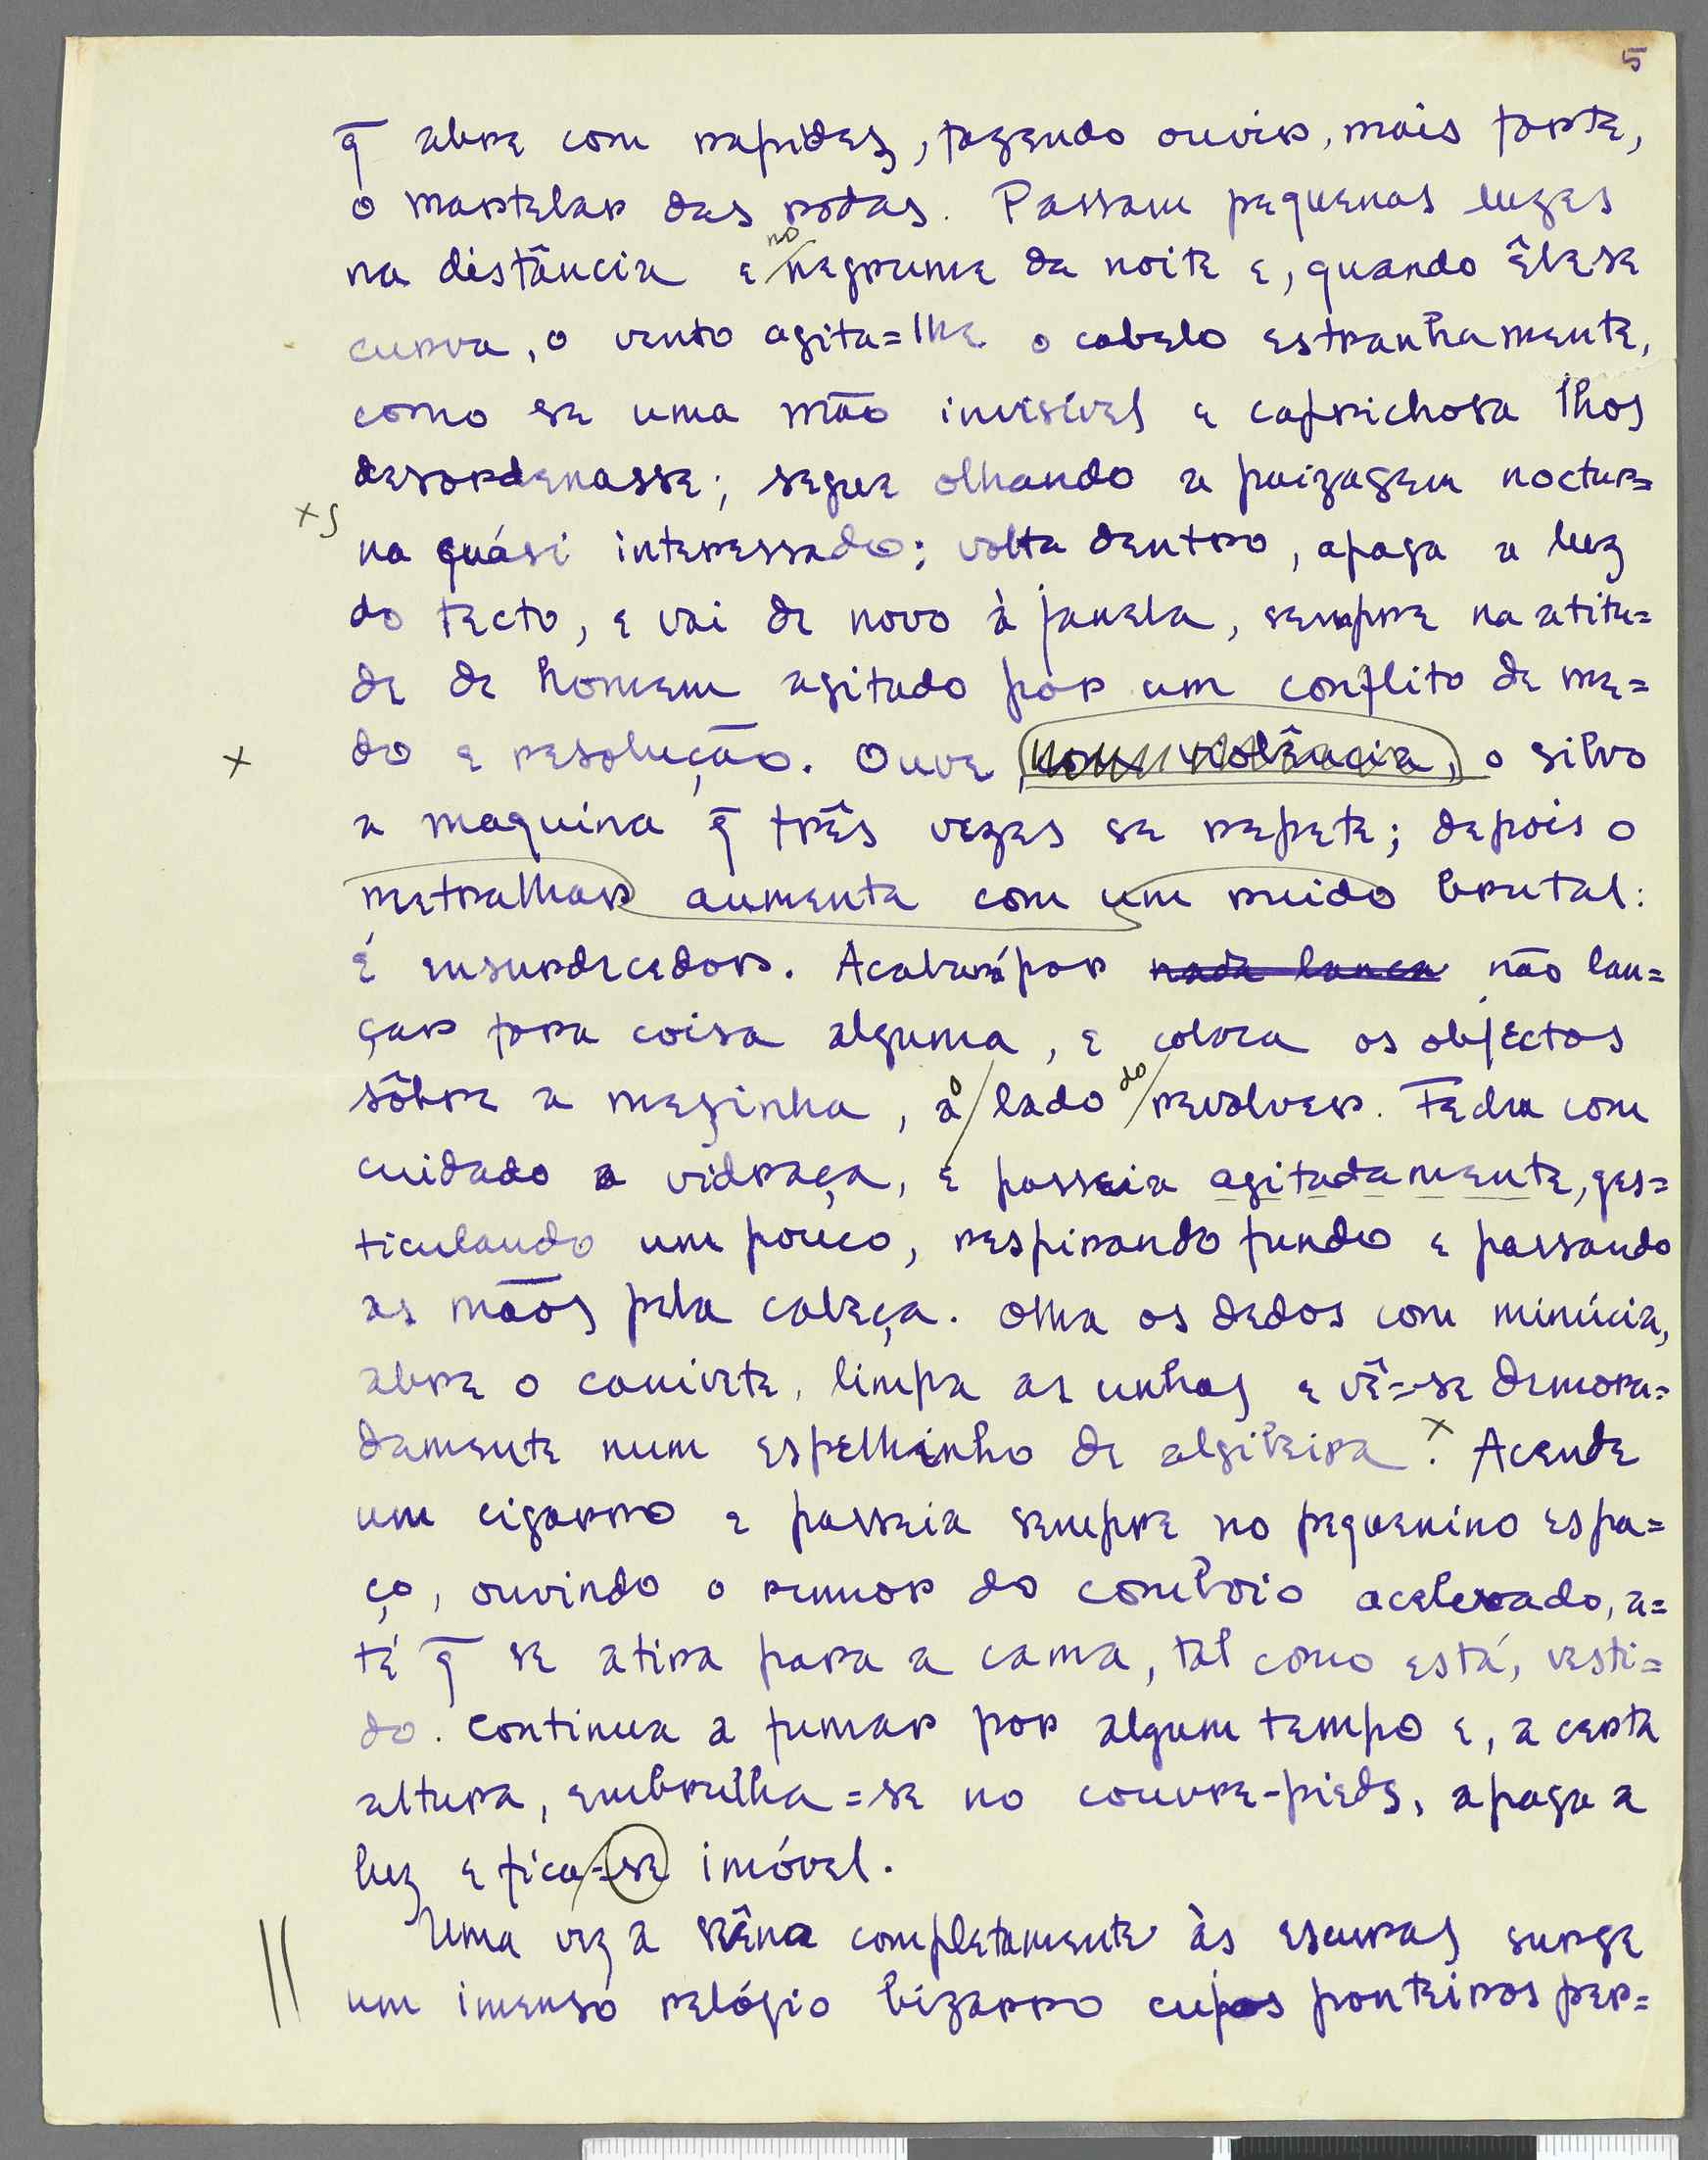 5
q̄ abre com rapidez, fazendo ouvir, mais forte,
o martelar das rodas. Passam pequenas luzes
na distância e no negrume da noite e, quando êle se
curva, o vento agita=lhe o cabelo estranhamente,
como se uma mão invisível e caprichosa lhos
desordenasse; segue olhando a paizagem noctur=
na quási interessado; volta dentro, apaga a luz
do tecto, e vai de novo à janela, sempre na atitu=
de de homem agitado por um conflito de me=
do e resolução. Ouve, com violência, o silvo
a maquina q̄ três vezes se repete; depois o
metralhar aumenta com um ruido brutal:
É ensurdecedor. Acabará por nada lança não lan=
çar fora coisa alguma, e coloca os objectos
sôbre a mezinha, ao lado do revolver. Fecha com
cuidado a vidraça, e passeia agitadamente, ges=
ticulando um pouco, respirando fundo e passando
as mãos pela cabeça. Olha os dedos com minúcia,
abre o canivete, limpa as unhas e vê=se demora=
damente num espelhinho de algibeira. Acende
um cigarro e passeia sempre no pequenino espa=
ço, ouvindo o rumor do comboio acelerado, a=
té q̄ se atira para a cama, tal como está, vesti=
do. Continua a fumar por algum tempo e, a certa
altura, embrulha=se no couvre-pieds, apaga a
luz e fica=se imóvel.
Uma vez a scêna completamente às escuras surge
um imenso relógio bizarro cujos ponteiros per=